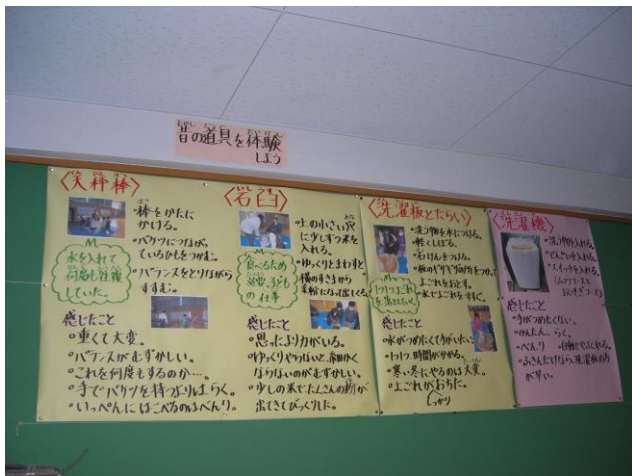 昔の道具を体験
しよう
〈天秤棒〉
・棒をかたに
かける。
・バケツにつながっ
ているひもをつかむ。
・バランスをとりながら
すすむ。
水を入れて
何度も往復
していた。
感じたこと
・重くて大変。
・バランスがむずかしい。
・これを何度もするのか…。
・手でバケツを持つよりはらく。
・いっぺんにはこべるのはべんり。
〈石臼〉
・上の小さい穴
に少しずつ米を
入れる。
・ゆっくりとまわすと
横のすきまから
米粉になって出てくる。
食べるため
の仕事
感じたこと
・思ったより力がいる。
・ゆっくりやらないと、細かく
ならないのがむずかしい。
・少しの米でたくさんの粉が
出てきてびっくりした。
〈洗濯板とたらい〉
・洗う物を水につける。
・軽くしぼる。
・石けんをつける。
・板のギザギザ部分をつかって
よごれをおとす。
・水でよごれをすすぐ。
感じたこと
・水がつめたくて手がいたい。
・時間がかかる。
・寒い冬にやるのは大変。
・よごれがおちた。
しっかり
〈洗濯機〉
・洗う物を入れる。
・せんざいを入れる。
・スイッチを入れる。
感じたこと
・手がつめたくない。
・かんたん、らく。
・べんり
・ふきんだけなら、洗濯板の方
が早い。